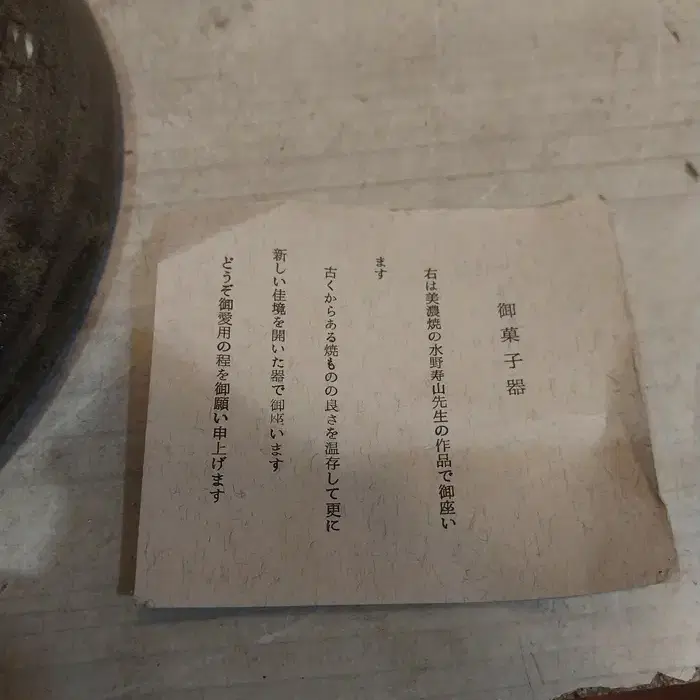 御菓子器
右は美濃焼の水野寿山先生の作品で御座い
ます
古くからある焼ものの良さを温存して更に
新しい佳境を開いた器で御座います
どうぞ御愛用の程を御願い申上げます